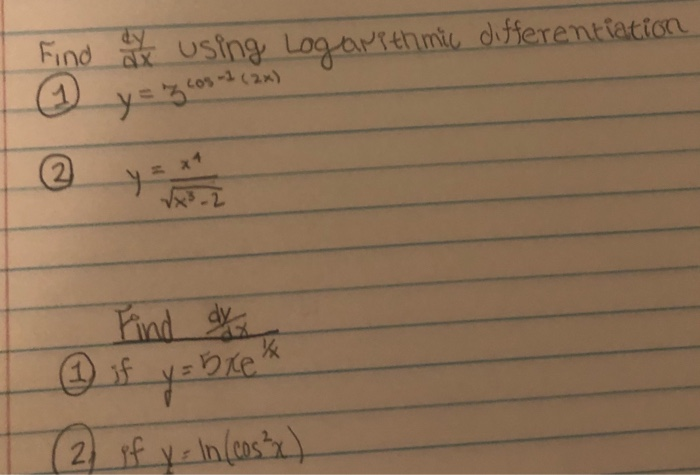 Find dy/dx using Logarithmic differentiation
① y = 3^cos⁻¹(2x)
② y = x⁴/√x³-2
Find dy/dx
① if y = 5xe^1/x
② if y = ln(cos²x)